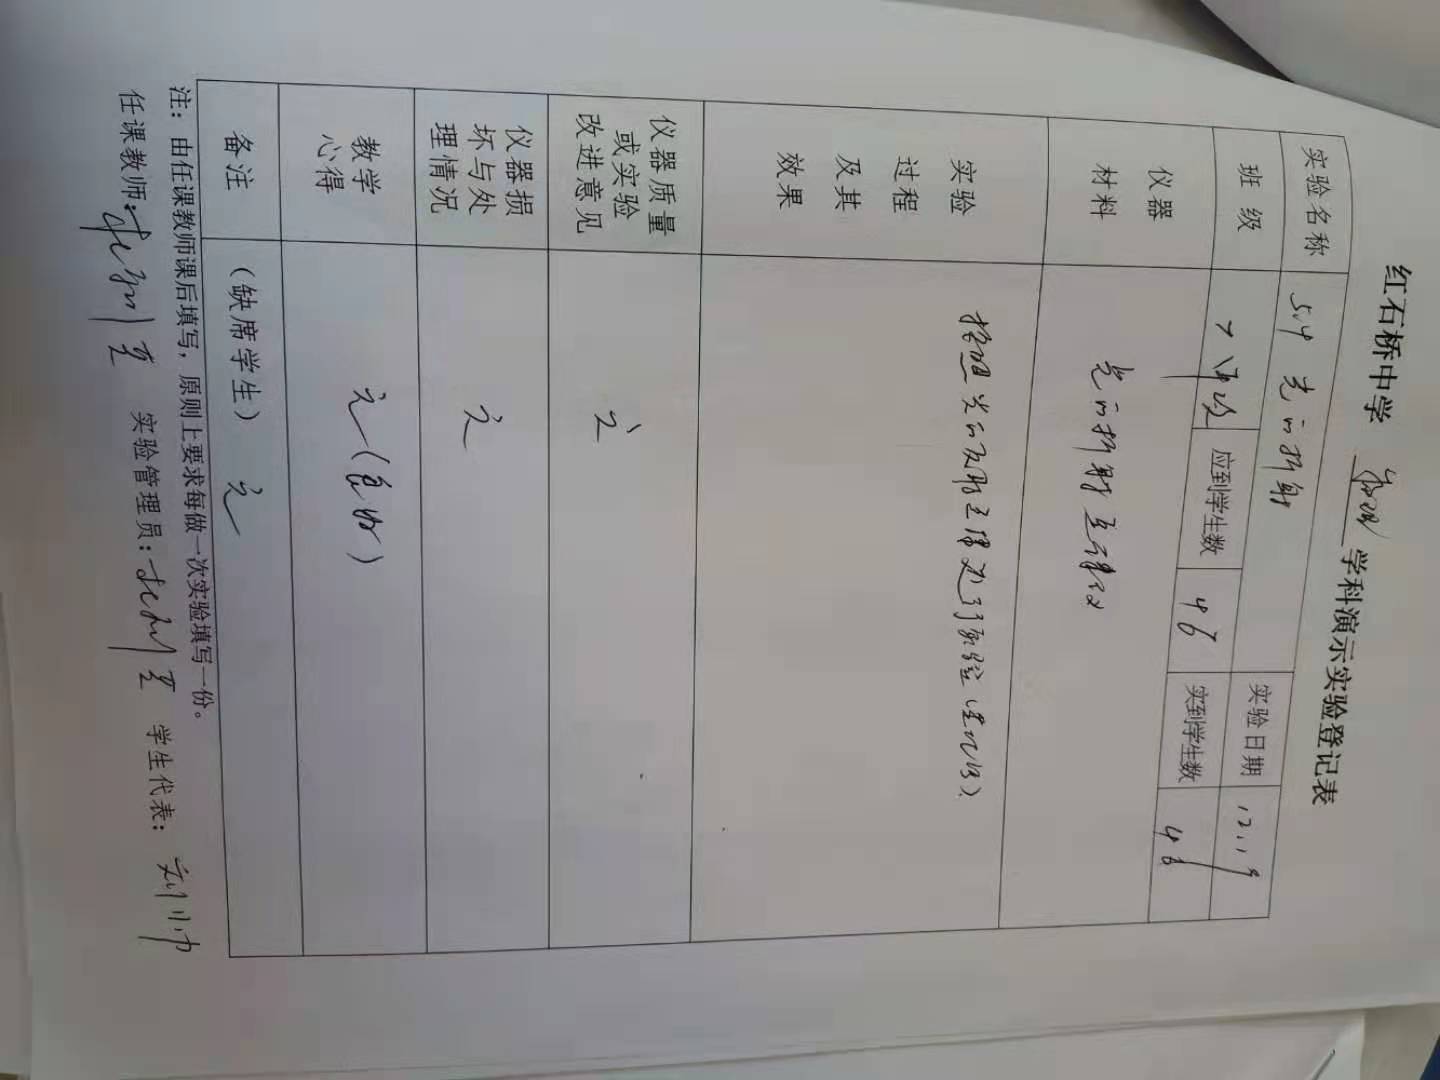 红石桥中学 物理 学科演示实验登记表
实验名称 5.4 光的折射 实验日期 12.19
班级 应到学生数 46 实到学生数 46
仪器材料 光的折射
实验过程及其效果 按照光的反射定律进行实验
仪器质量或实验改进意见 无
仪器损坏与处理情况 无
教学心得 无
备注 (缺席学生) 无
注：由任课教师课后填写，原则上要求每做一次实验填写一份。
任课教师: 实验管理员: 学生代表: 刘小巾